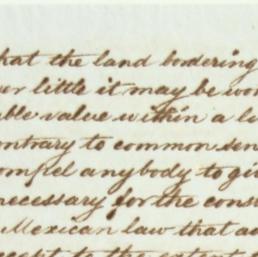 hat the land bordering
ver little it may be wor
able value within a li
ontrary to common sen
compel anybody to gi
necessary for the cons
Mexican law that au
except to the extent